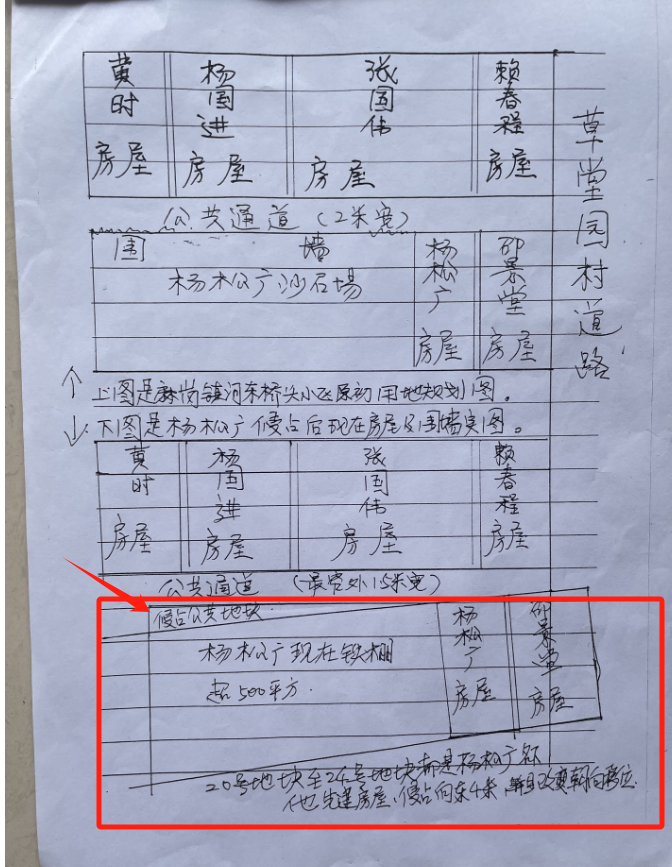 黄时房屋
杨国进房屋
张国伟房屋
赖春程房屋
草堂园村道路
公共通道(2米宽)
围墙
杨松广沙石场
杨松广房屋
邵景堂房屋
↑上图是麻岗镇河东桥头小区原初用地规划图。
↓下图是杨松广侵占后现在房屋及围墙实图。
黄时房屋
杨国进房屋
张国伟房屋
赖春程房屋
公共通道(最宽处15米宽)
侵占公共地块
杨松广现在铁棚
超500平方.
杨松广房屋
邵景堂房屋
20号地块至24号地块都是杨松广名
他先建房屋、侵占向东4米,并且改变朝向移位.